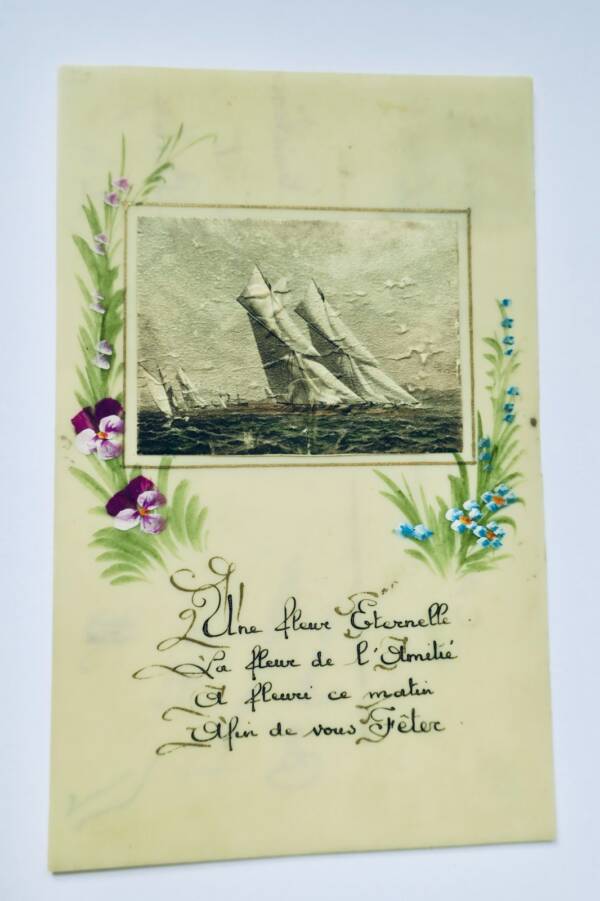 Une fleur Eternelle.
La fleur de l'Amitié
A fleuri ce matin
Afin de vous Fêter.